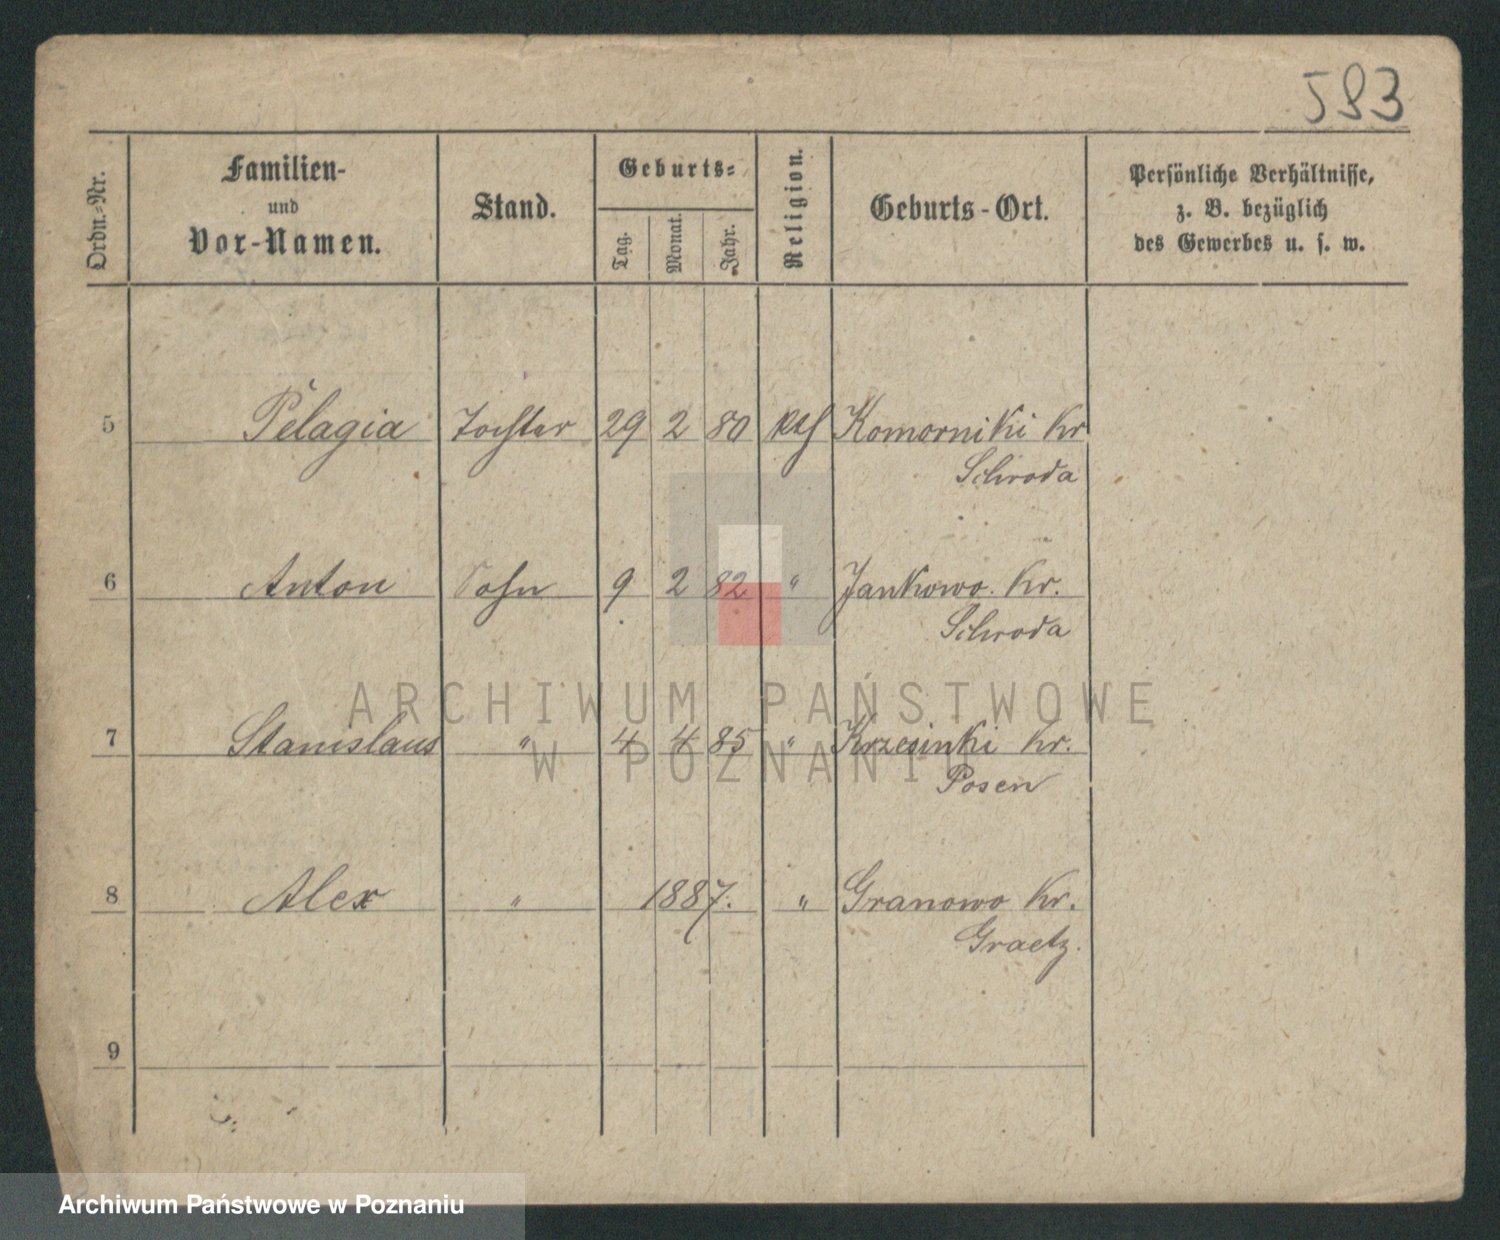 593
Ordn.-Nr.
Familien-
und
Vor-Namen.
Stand.
Geburts-
Tag.
Monat.
Jahr.
Religion.
Geburts-Ort.
Persönliche Verhältnisse,
z. B. bezüglich
des Gewerbes u. s. w.
5 Pelagia Tochter 29 2 80 Kth Komorniki Kr
Schroda
6 Anton Sohn 9 2 82 " Jankowo Kr.
Schroda
ARCHIWUM PAŃSTWOWE
7 Stanislaus " 4 4 85 " Krzesinki Kr.
W POZNANIU
Posen
8 Alex " 1887. " Granowo Kr.
Graetz.
9
Archiwum Państwowe w Poznaniu